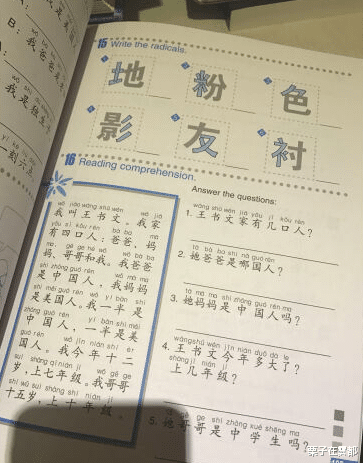 B：我爸爸
我是独生
一刻六点
15 Write the radicals.
地 粉 色
影 友 衬
16 Reading comprehension.
wǒ jiào wáng shū wén wǒ jiā
我叫王书文。我家
yǒu sì kǒu rén bà ba mā
有四口人：爸爸、妈
ma gē ge hé wǒ wǒ bà ba
妈、哥哥和我。我爸爸
shì zhōng guó rén wǒ mā ma
是中国人，我妈妈
shì měi guó rén wǒ yí bàn shì
是美国人。我一半是
zhōng guó rén yí bàn shì měi
中国人，一半是美
guó rén wǒ jīn nián shí èr
国人。我今年十二
suì shàng qī nián jí wǒ gē ge
岁，上七年级。我哥哥
shí wǔ suì shàng shí nián jí
十五岁，上十年级。
Answer the questions:
wáng shū wén jiā yǒu jǐ kǒu rén
1. 王书文家有几口人？
tā bà ba shì nǎ guó rén
2. 她爸爸是哪国人？
tā mā ma shì zhōng guó rén ma
3. 她妈妈是中国人吗？
wáng shū wén jīn nián duō dà le
4. 王书文今年多大了？
shàng jǐ nián jí
上几年级？
tā gē ge shì zhōng xué shēng ma
5. 她哥哥是中学生吗？
栗子在成都